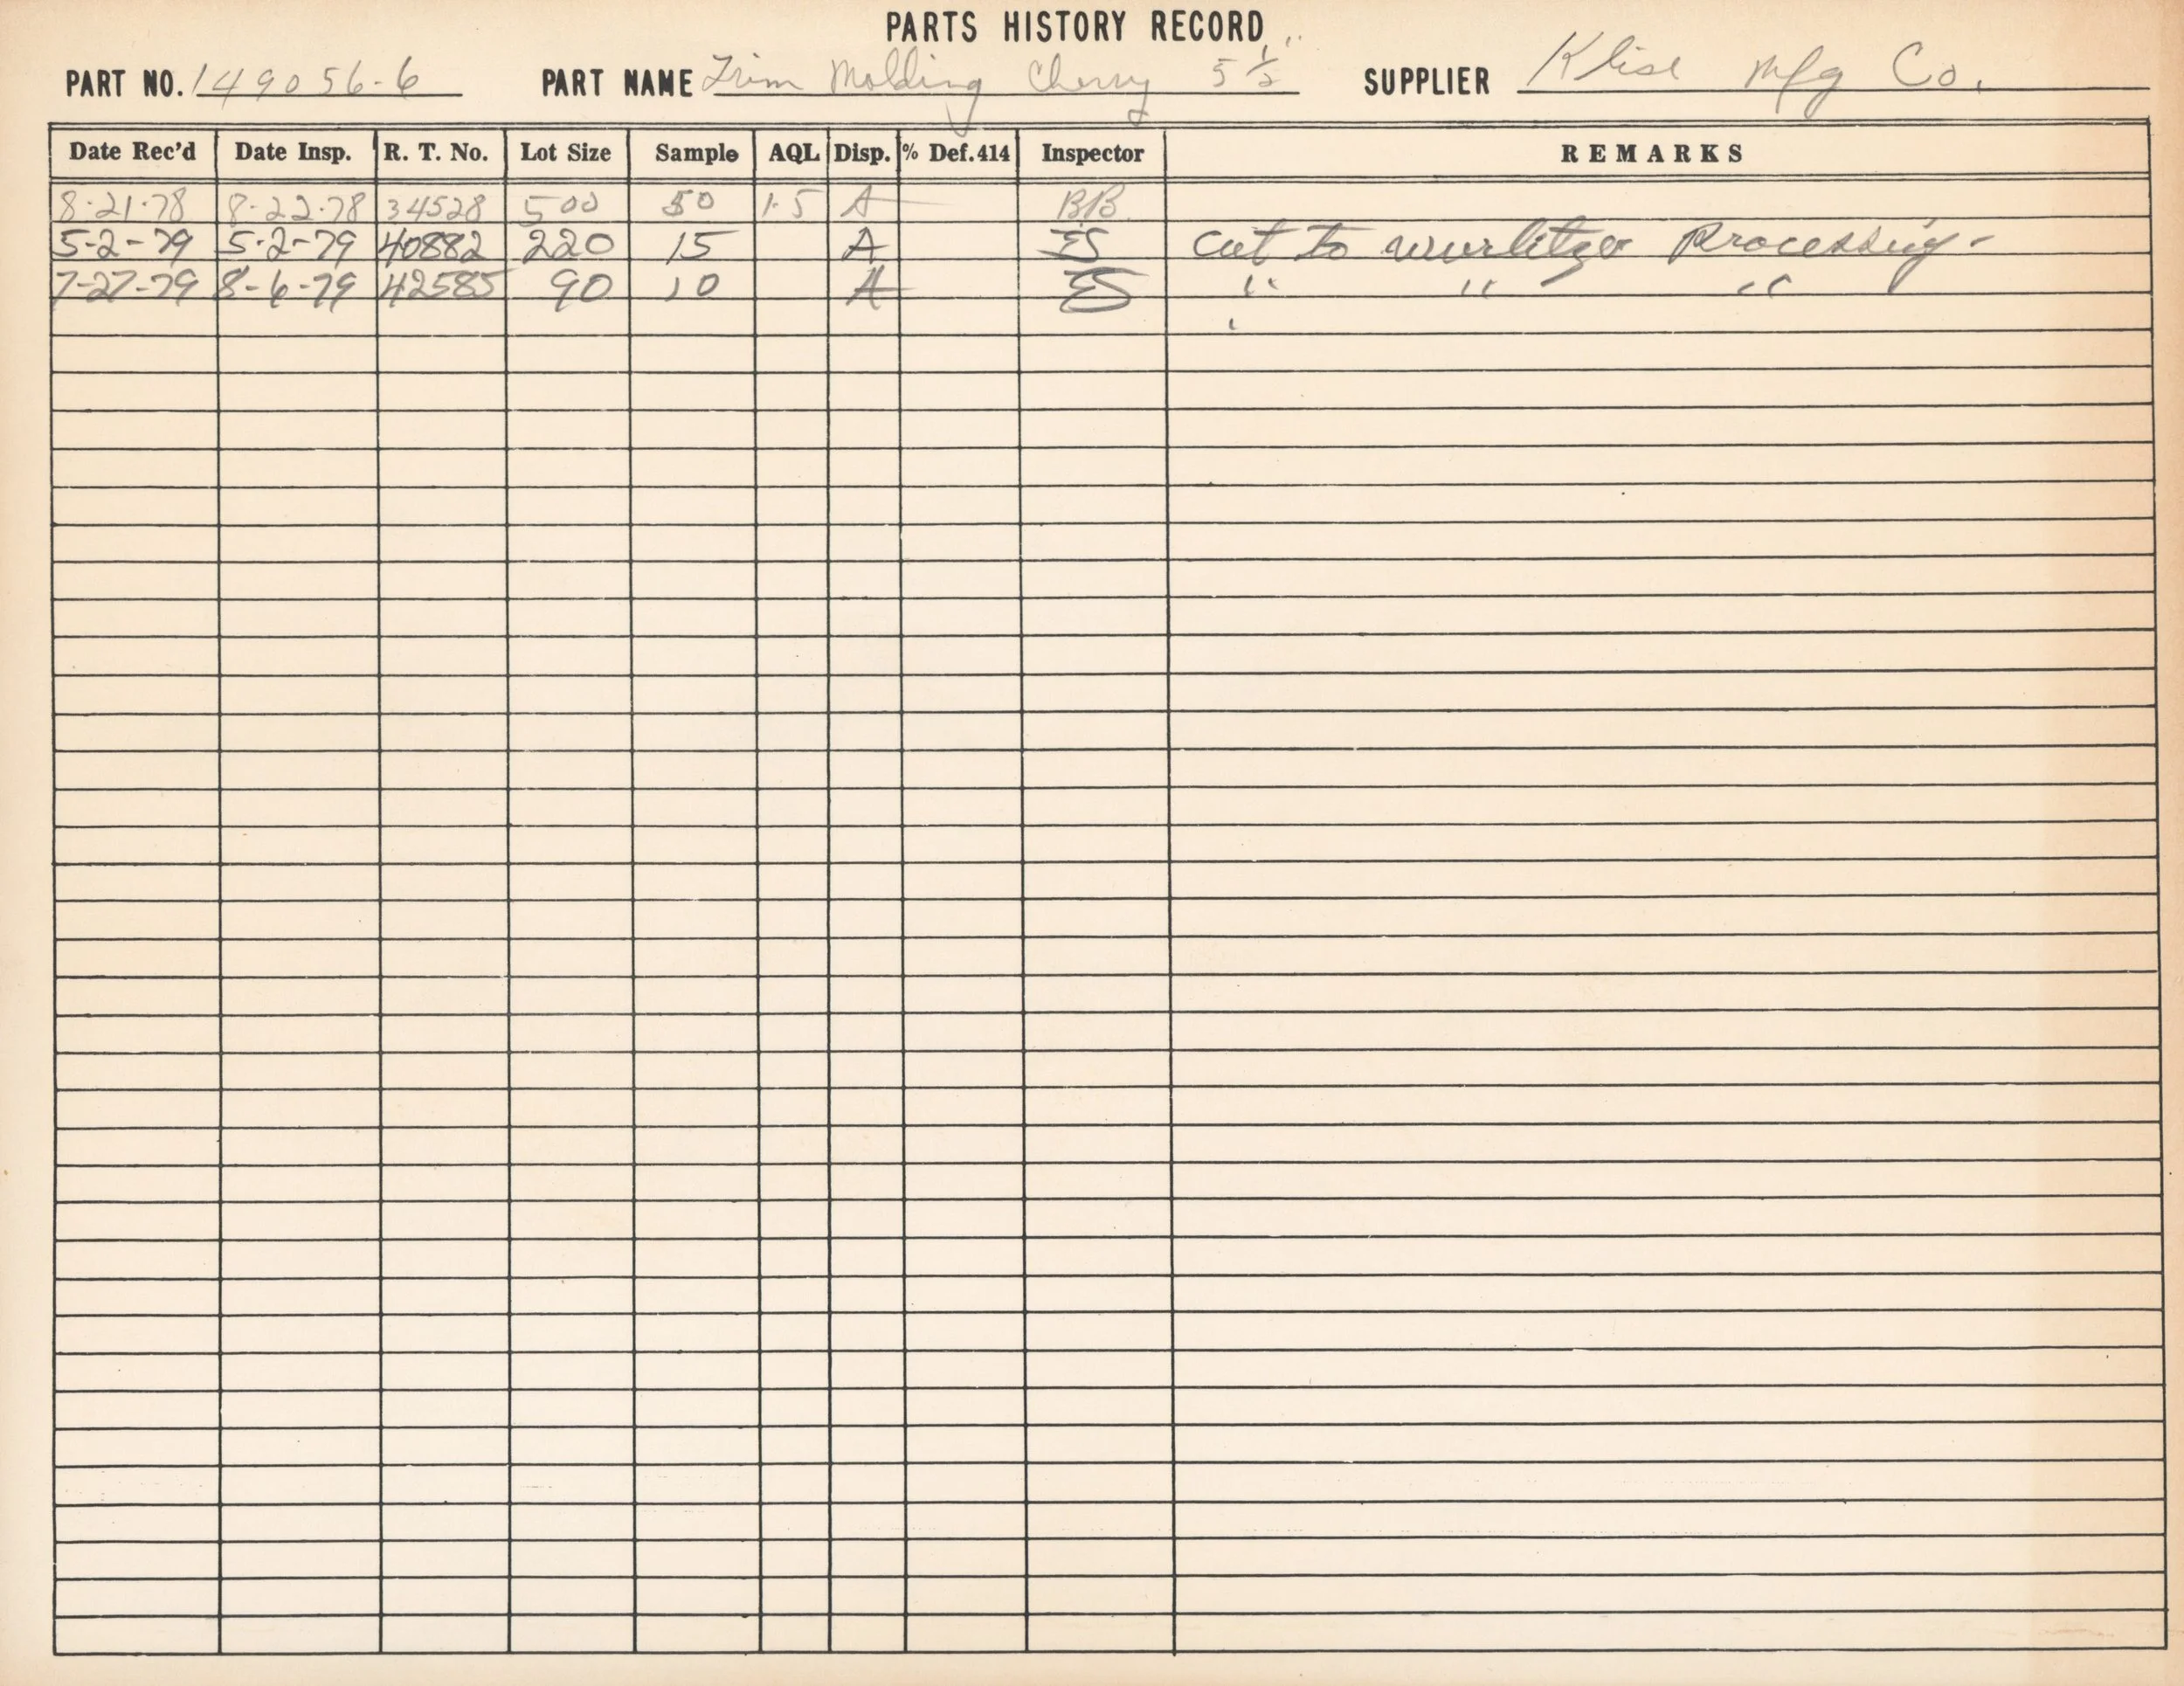 PARTS HISTORY RECORD
PART NO. 149056-6 PART NAME Trim Molding Cherry 5 1/2" SUPPLIER Klise Mfg Co.
Date Rec'd Date Insp. R. T. No. Lot Size Sample AQL Disp. % Def. 414 Inspector REMARKS
8-21-78 8-22-78 34528 500 50 1.5 A BB
5-2-79 5-2-79 40882 220 15 A ES cut to wurlitzer Processing-
7-27-79 8-6-79 42585 90 10 A ES " " "